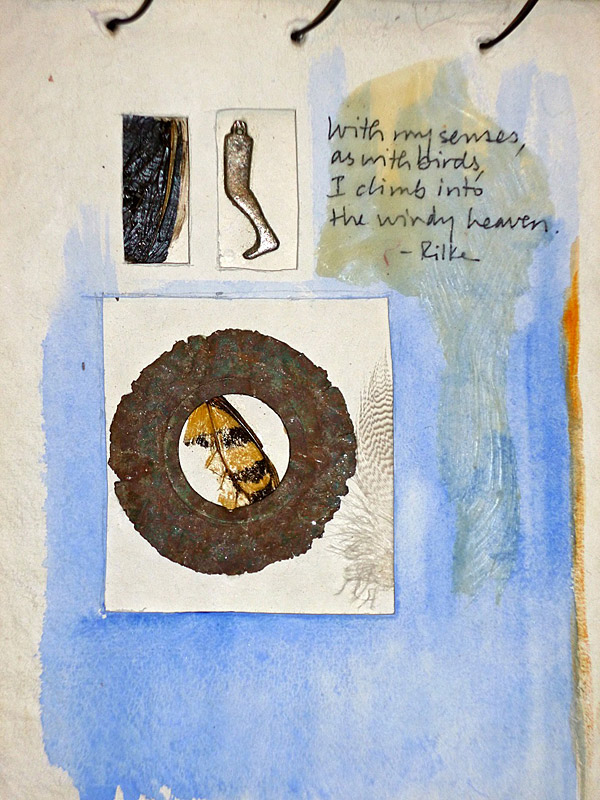 With my senses,
as with birds,
I climb into
the windy heaven.
- Rilke